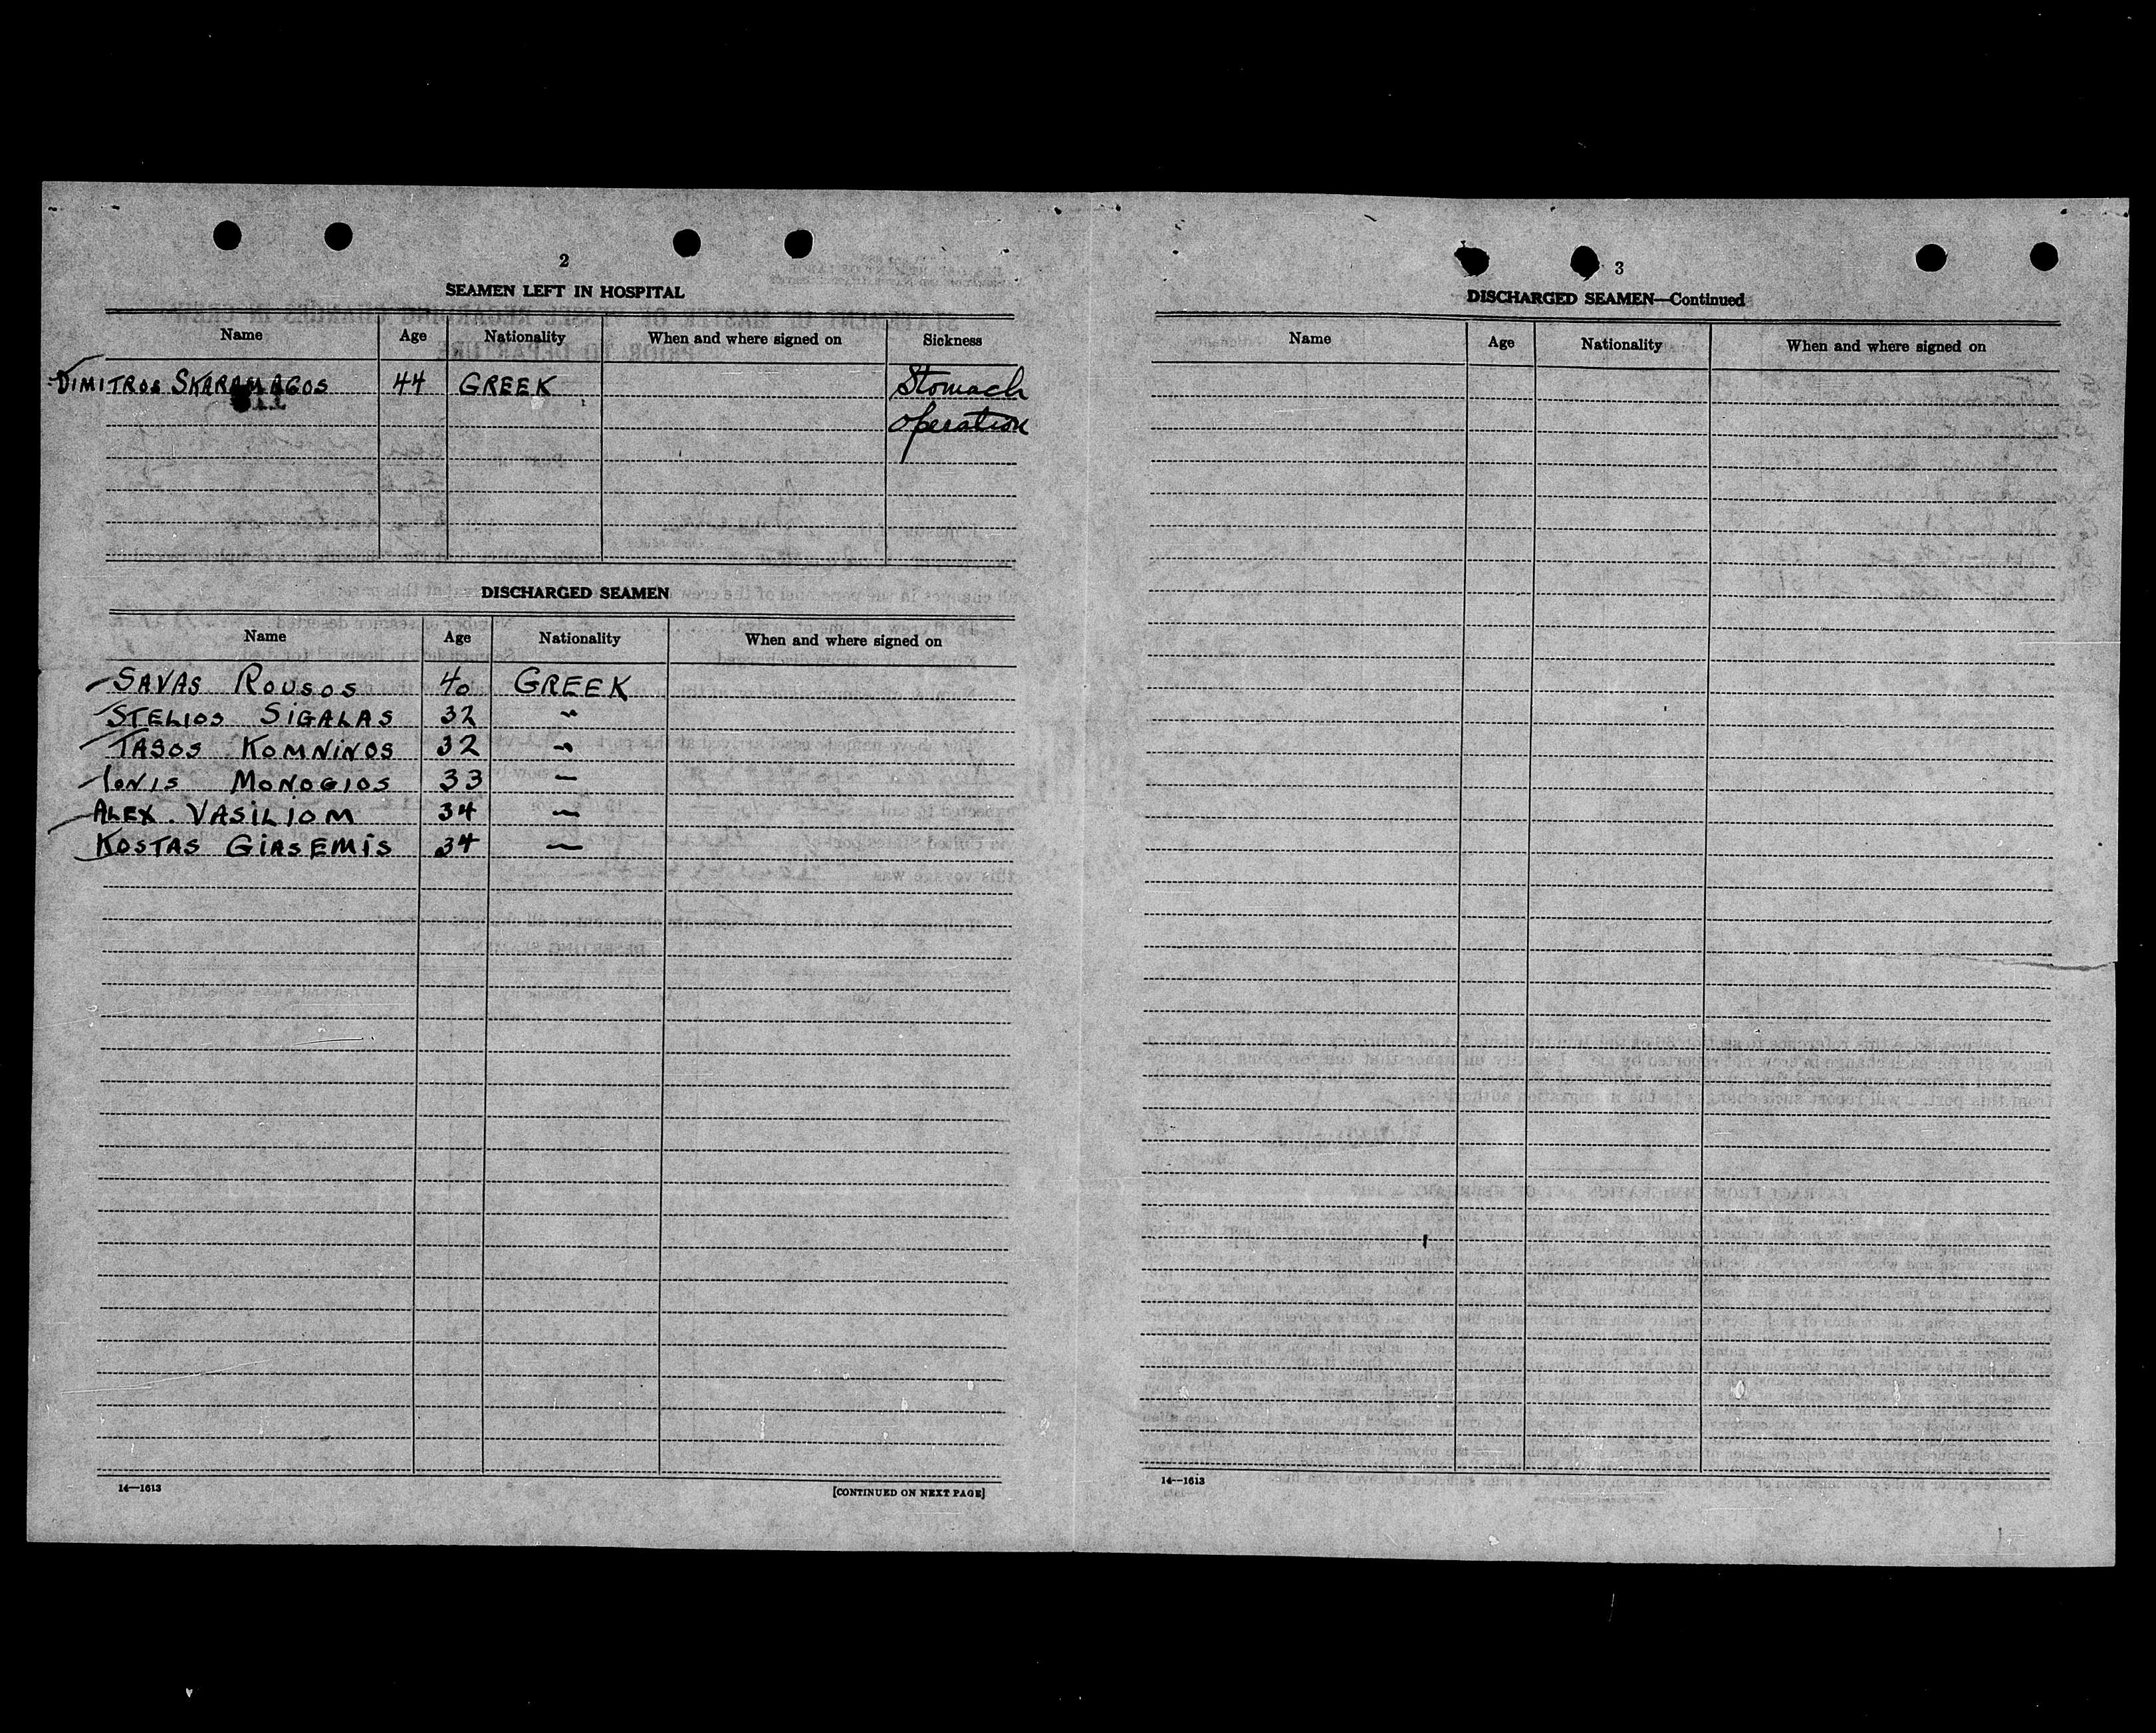 2
SEAMEN LEFT IN HOSPITAL
Name Age Nationality When and where signed on Sickness
DIMITROS SKARAMAGOS 44 GREEK Stomach
operation
DISCHARGED SEAMEN
Name Age Nationality When and where signed on
SAVAS ROUSOS 40 GREEK
STELIOS SIGALAS 32 "
TASOS KOMNINOS 32 "
IONIS MONOGIOS 33 —
ALEX. VASILIOM 34 —
KOSTAS GIASEMIS 34 —
14—1613
[CONTINUED ON NEXT PAGE]
3
DISCHARGED SEAMEN—Continued
Name Age Nationality When and where signed on
14—1613